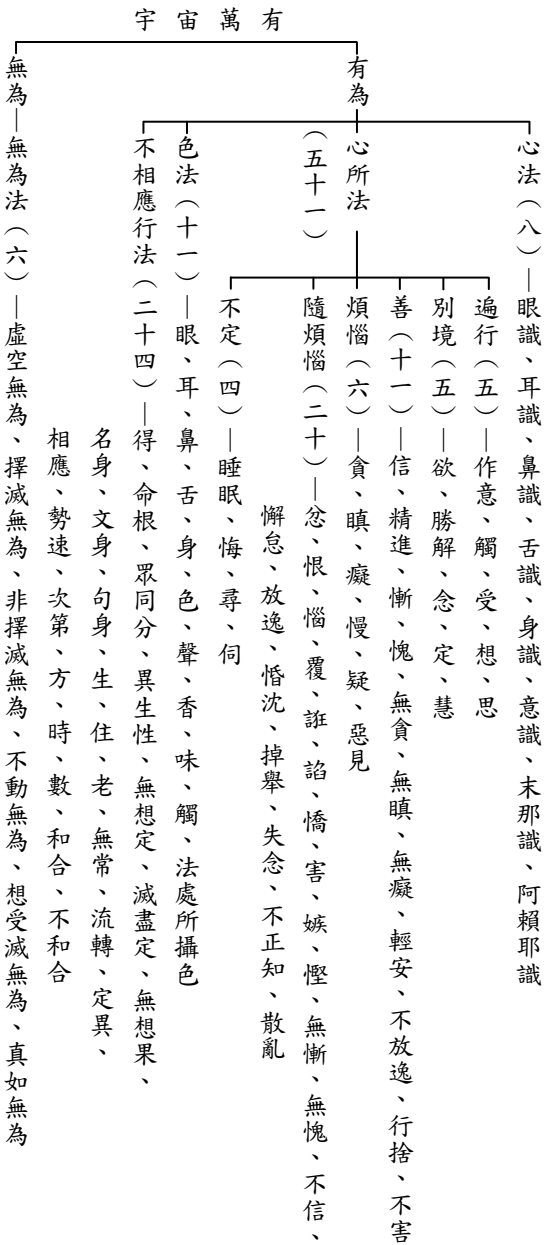 宇宙萬有
有為
心法（八）—眼識、耳識、鼻識、舌識、身識、意識、末那識、阿賴耶識
心所法
（五十一）
遍行（五）—作意、觸、受、想、思
別境（五）—欲、勝解、念、定、慧
善（十一）—信、精進、慚、愧、無貪、無瞋、無癡、輕安、不放逸、行捨、不害
煩惱（六）—貪、瞋、癡、慢、疑、惡見
隨煩惱（二十）—忿、恨、惱、覆、誑、諂、憍、害、嫉、慳、無慚、無愧、不信、
懈怠、放逸、惛沈、掉舉、失念、不正知、散亂
不定（四）—睡眠、悔、尋、伺
色法（十一）—眼、耳、鼻、舌、身、色、聲、香、味、觸、法處所攝色
不相應行法（二十四）—得、命根、眾同分、異生性、無想定、滅盡定、無想果、
名身、文身、句身、生、住、老、無常、流轉、定異、
相應、勢速、次第、方、時、數、和合、不和合
無為—無為法（六）—虛空無為、擇滅無為、非擇滅無為、不動無為、想受滅無為、真如無為